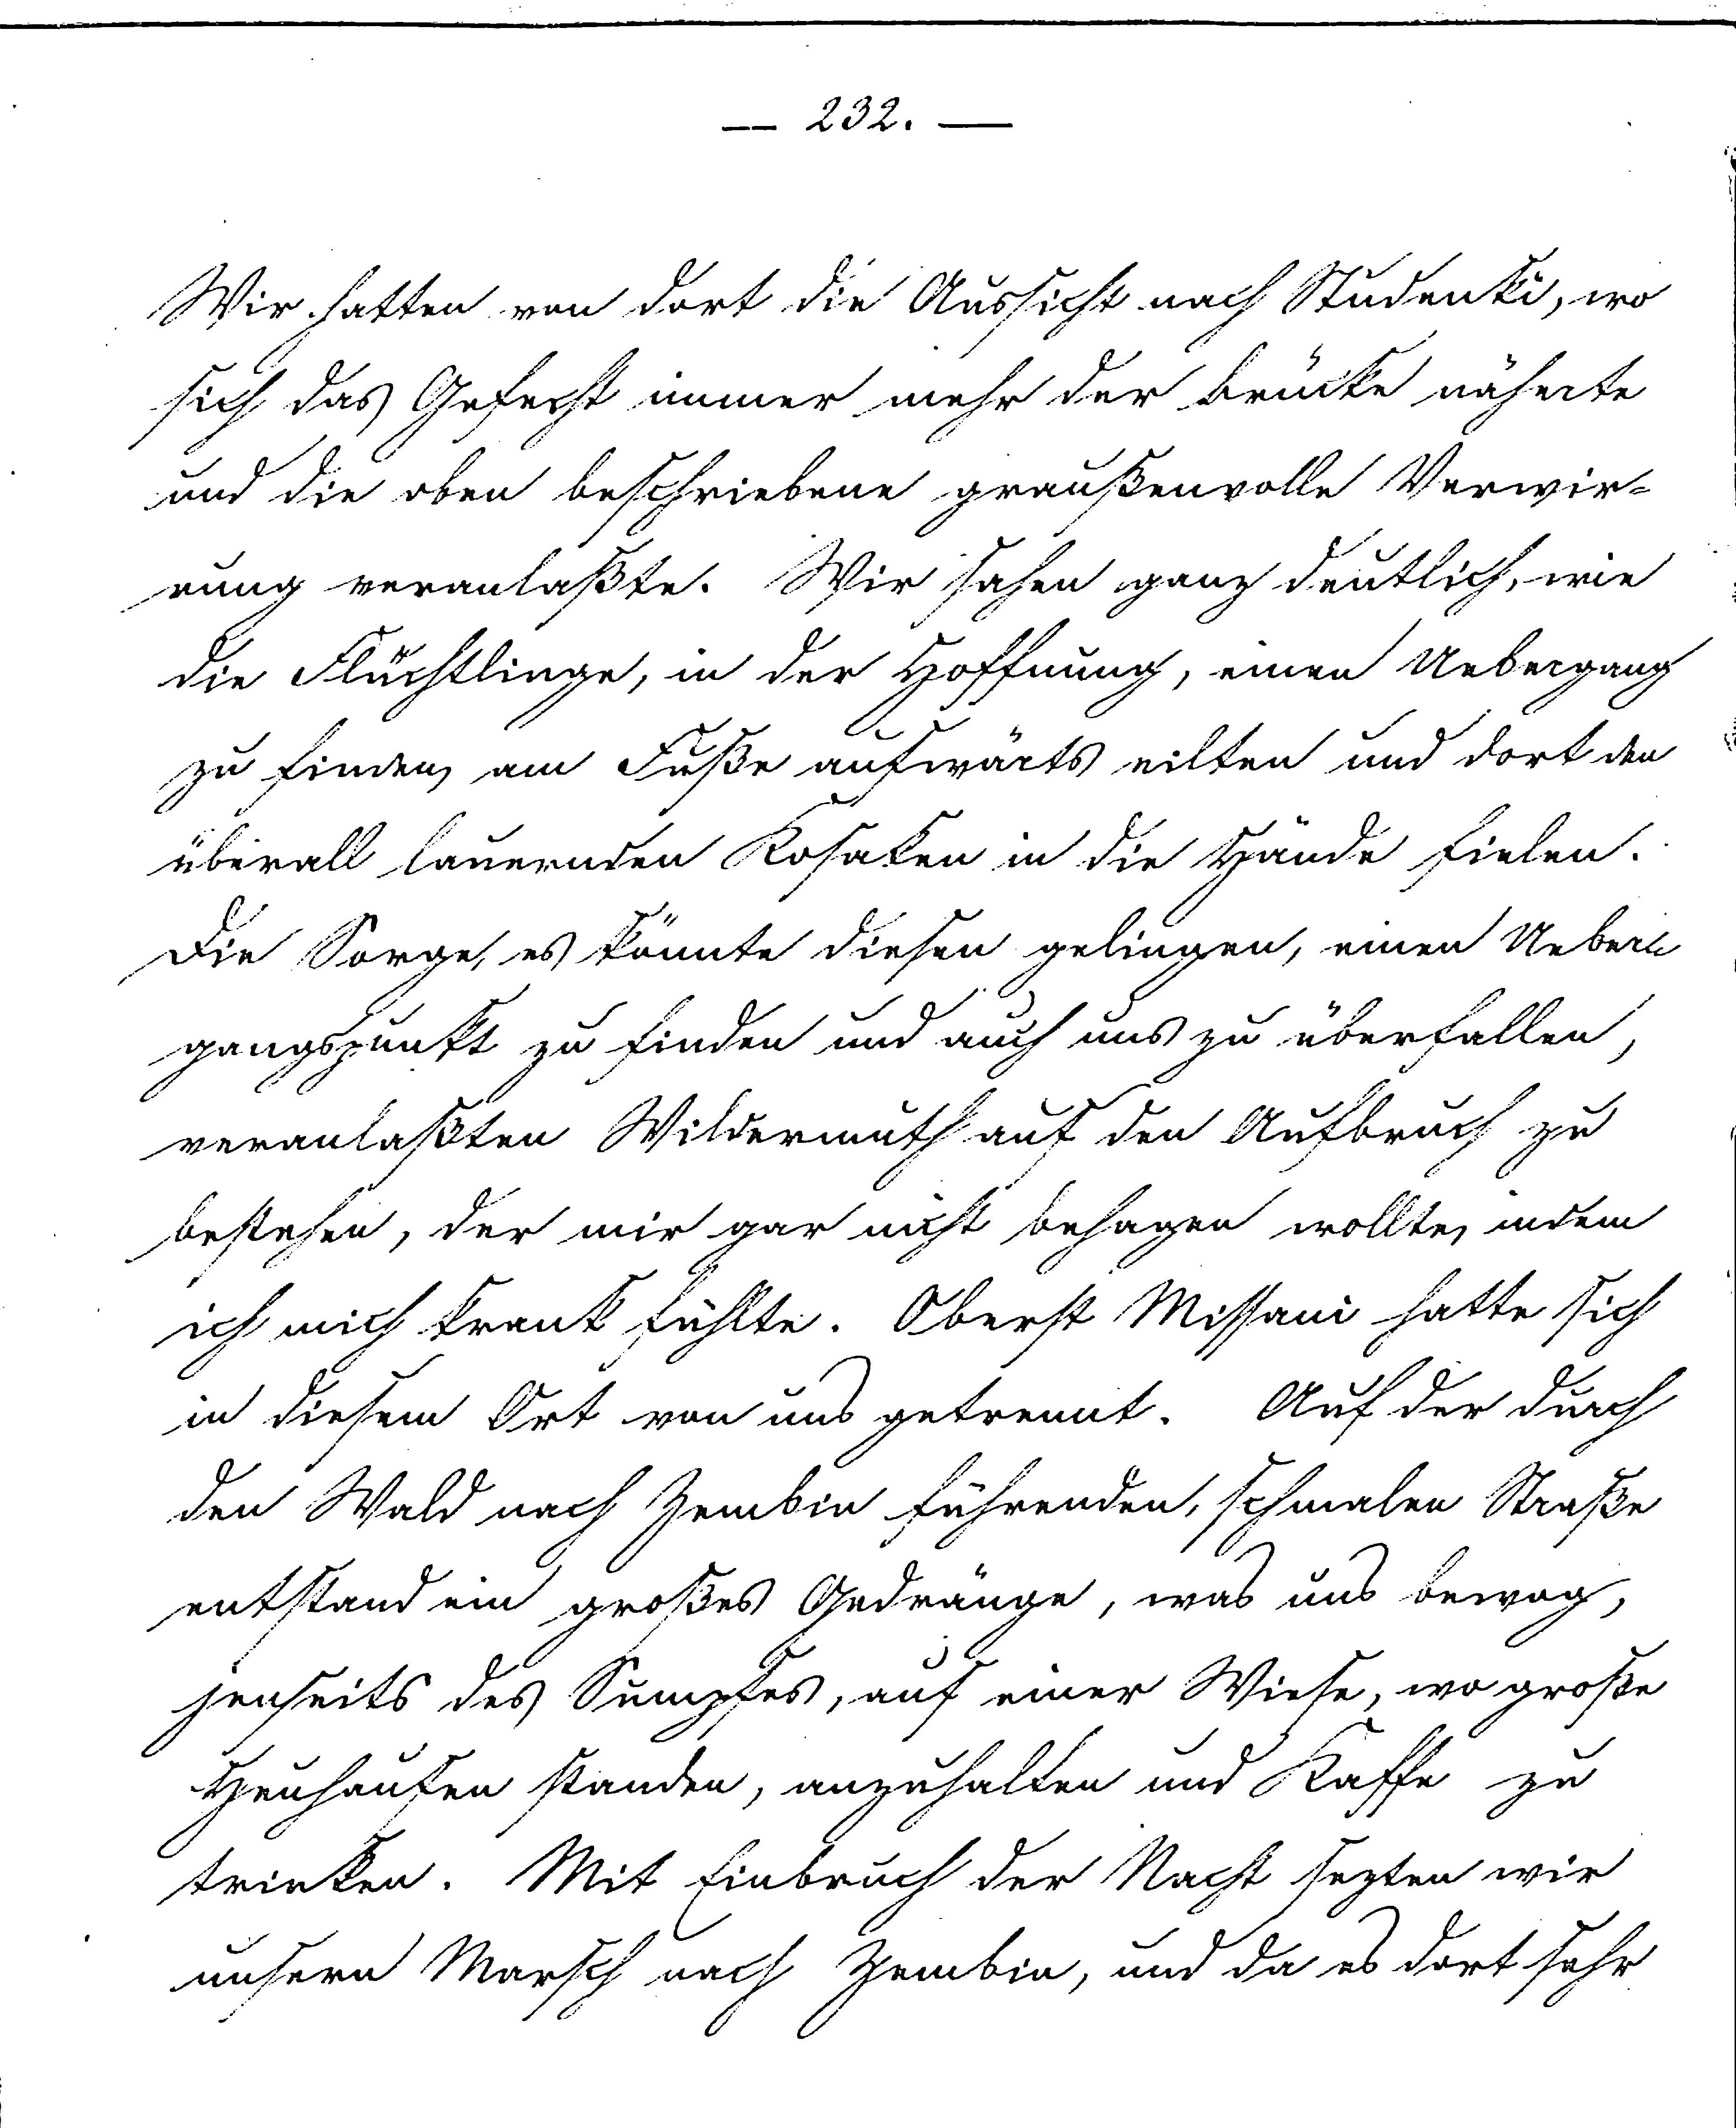 — 232. —
Wir hatten von dort die Aussicht nach Studenki, wo
sich das Gefecht immer mehr der Brücke näherte
und die oben beschriebene graußenvolle Verwir-
rung veranlaßte. Wir sahen ganz deutlich, wie
die Flüchtlinge, in der Hoffnung, einen Uebergang
zu finden, am Fuße aufwärts eilten und dort den
überall lauernden Kosaken in die Hände fielen.
Die Sorge, es könnte diesen gelingen, einen Ueber-
gangspunkt zu finden und auch uns zu überfallen,
veranlaßten Wildermuth auf den Aufbruch zu
bestehen, der mir gar nicht behagen wollte, indem
ich mich krank fühlte. Oberst Missani hatte sich
in diesem Ort von uns getrennt. Auf der durch
den Wald nach Zembin führenden, schmalen Straße
entstand ein großes Gedränge, was uns bewog,
jenseits des Sumpfes, auf einer Wiese, wo große
Heuhaufen standen, anzuhalten und Kaffe zu
trinken. Mit Einbruch der Nacht sezten wir
unsern Marsch nach Zembin, und da es dort sehr